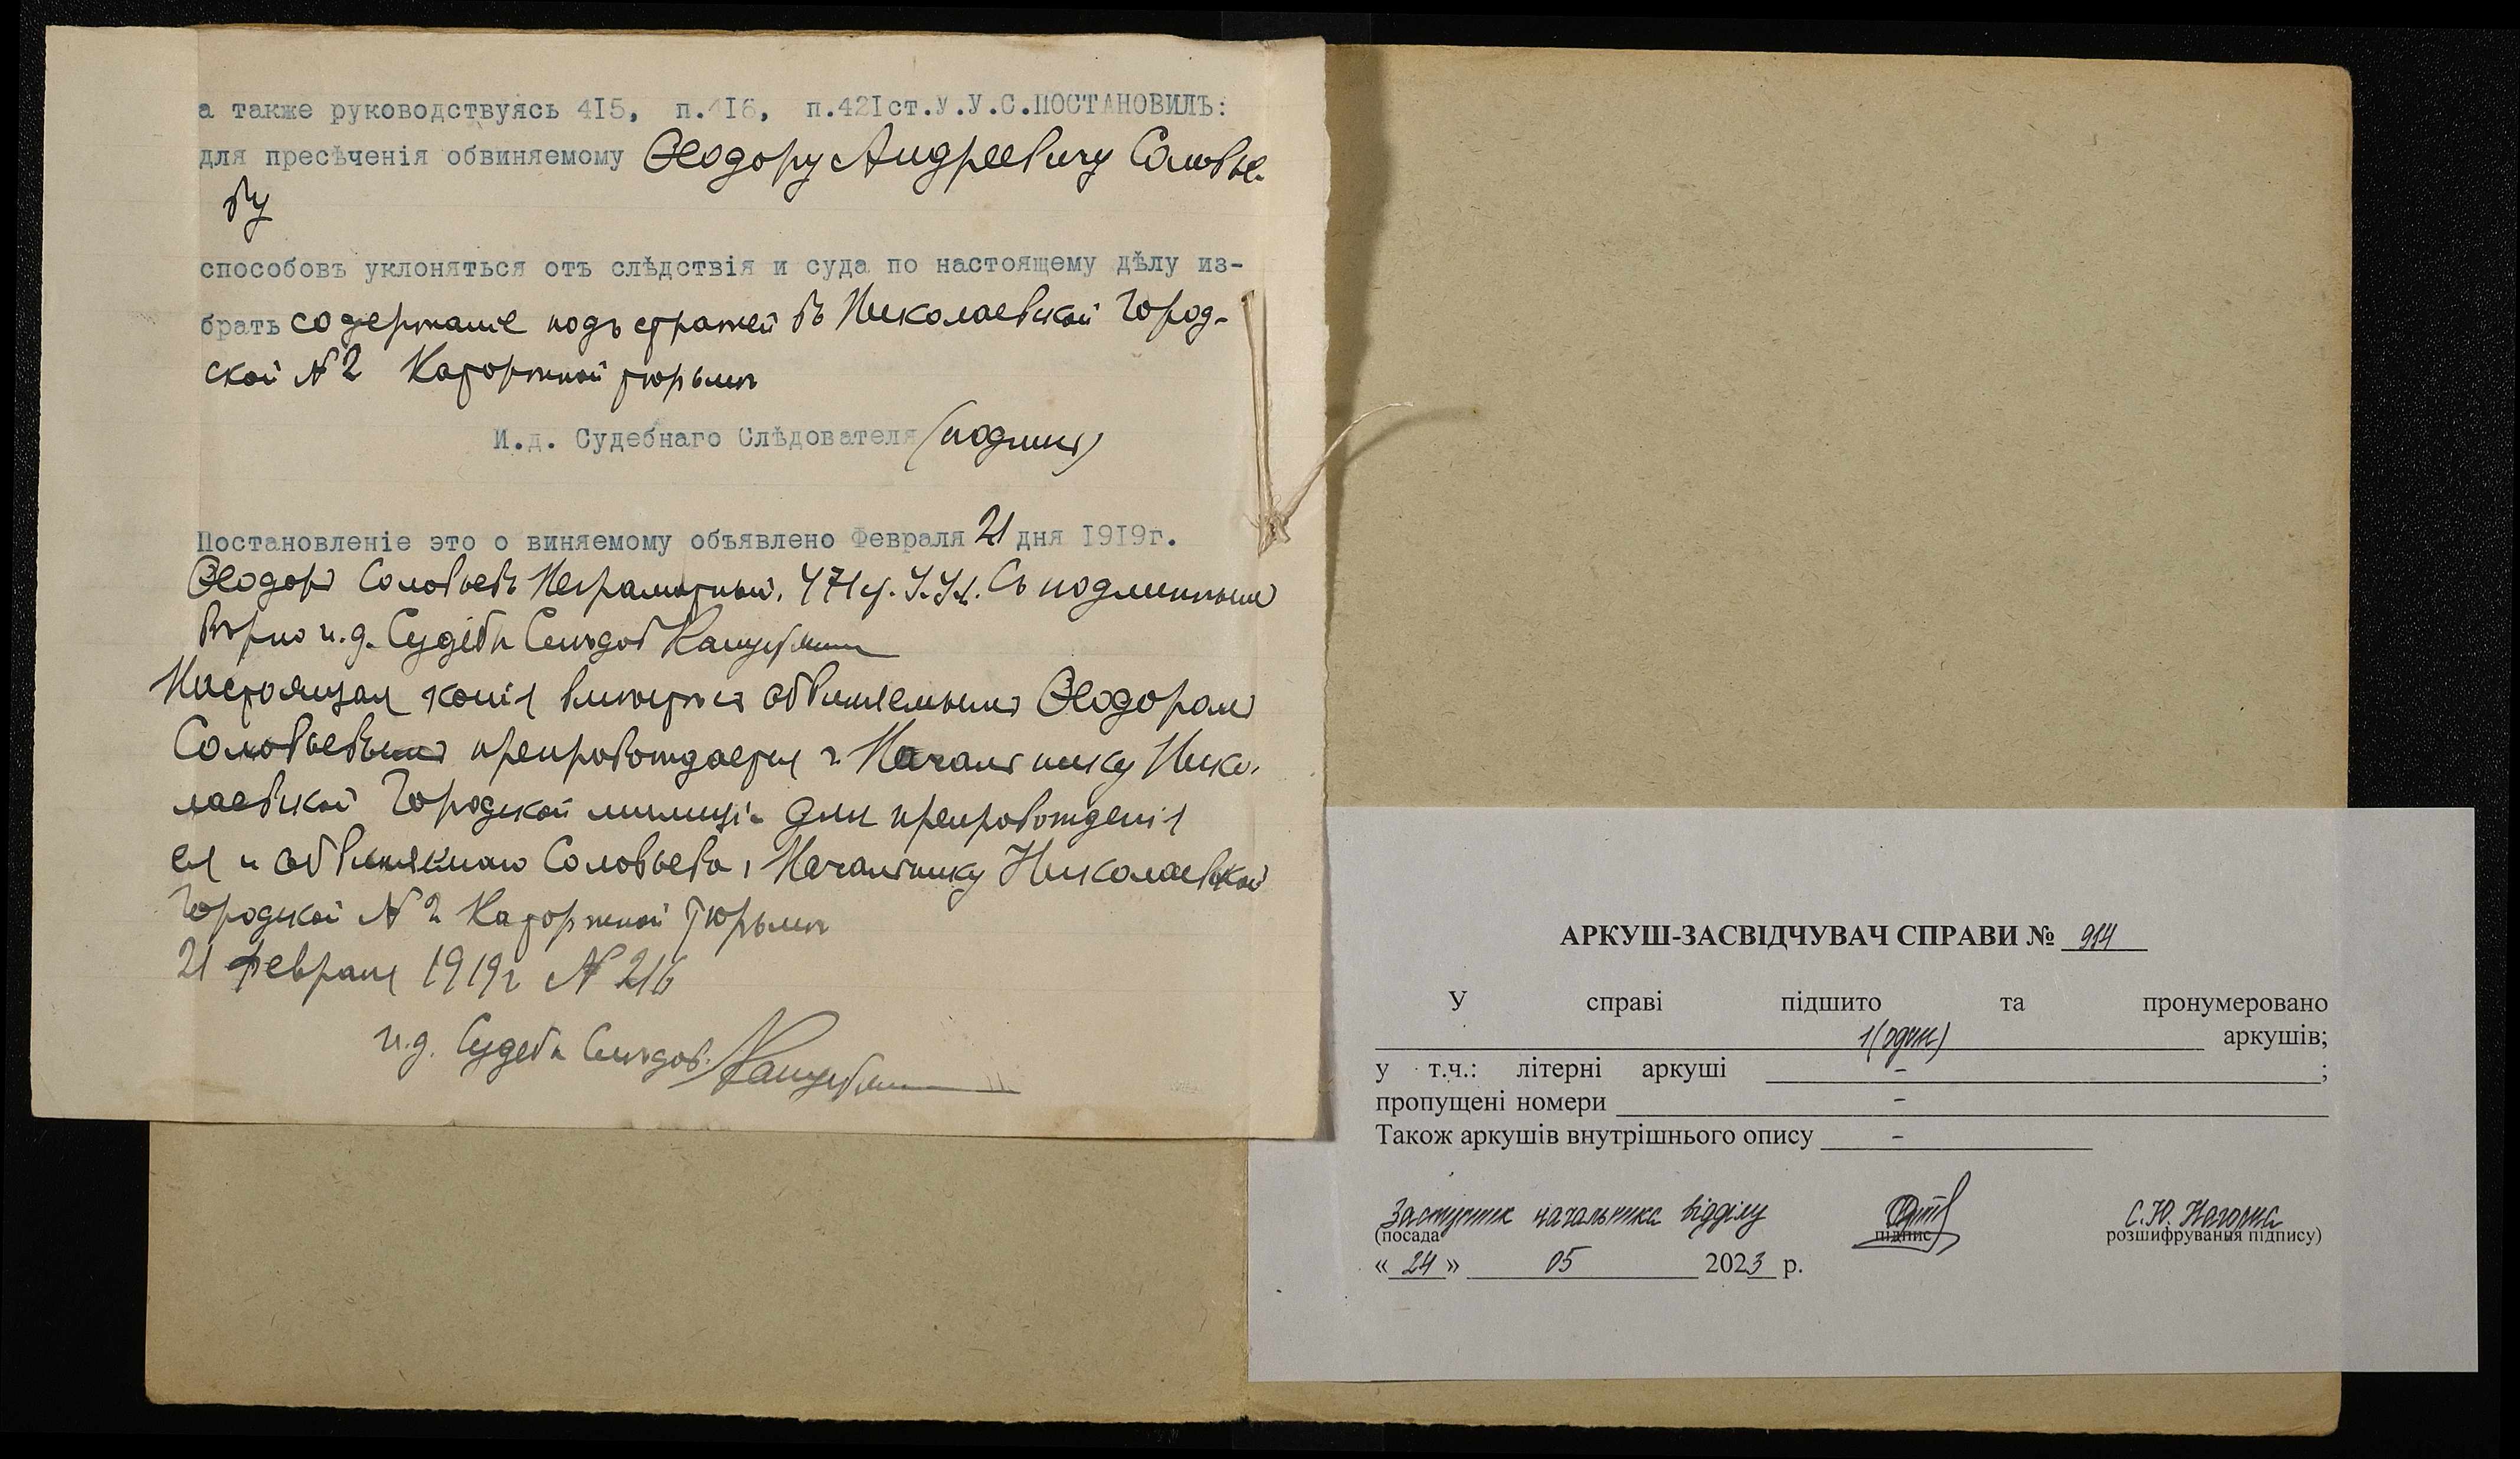 а также руководствуясь 4I5, п.4I6, п.42Iст.У.У.С.ПОСТАНОВИЛЪ:
для пресѣченія обвиняемому Ѳеодору Андреевичу Соловье-
ву
способовъ уклоняться отъ слѣдствія и суда по настоящему дѣлу из-
брать содержаніе подъ стражей въ Николаевской Город-
ской № 2 Каторжной тюрьмѣ
И.д. Судебнаго Слѣдователя (подпись)
Постановленіе это о виняемому объявлено Февраля 21 дня I9I9г.
Ѳеодоръ Соловьевъ Неграмотный. 471 ст. У.У.С. Съ подлиннымъ
вѣрно и.д. Судебн Слѣдов
Настоящая копія вмѣстѣ съ обвиняемымъ Ѳеодоромъ
Соловьевымъ препровождается г. Начальнику Нико-
лаевской Городской милиціи для препровожденія
ея и обвиняемаго Соловьева г. Начальнику Николаевской
Городской № 2 Каторжной Тюрьмы
21 февраля 1919 г № 216
и.д. Судебн Слѣдов.
АРКУШ-ЗАСВІДЧУВАЧ СПРАВИ № 914
У справі підшито та пронумеровано
1 (один) аркушів;
у т.ч.: літерні аркуші - ;
пропущені номери -
Також аркушів внутрішнього опису -
Заступник начальника відділу С.Ю. Нагорна
(посада підпис розшифрування підпису)
« 24 » 05 2023 р.